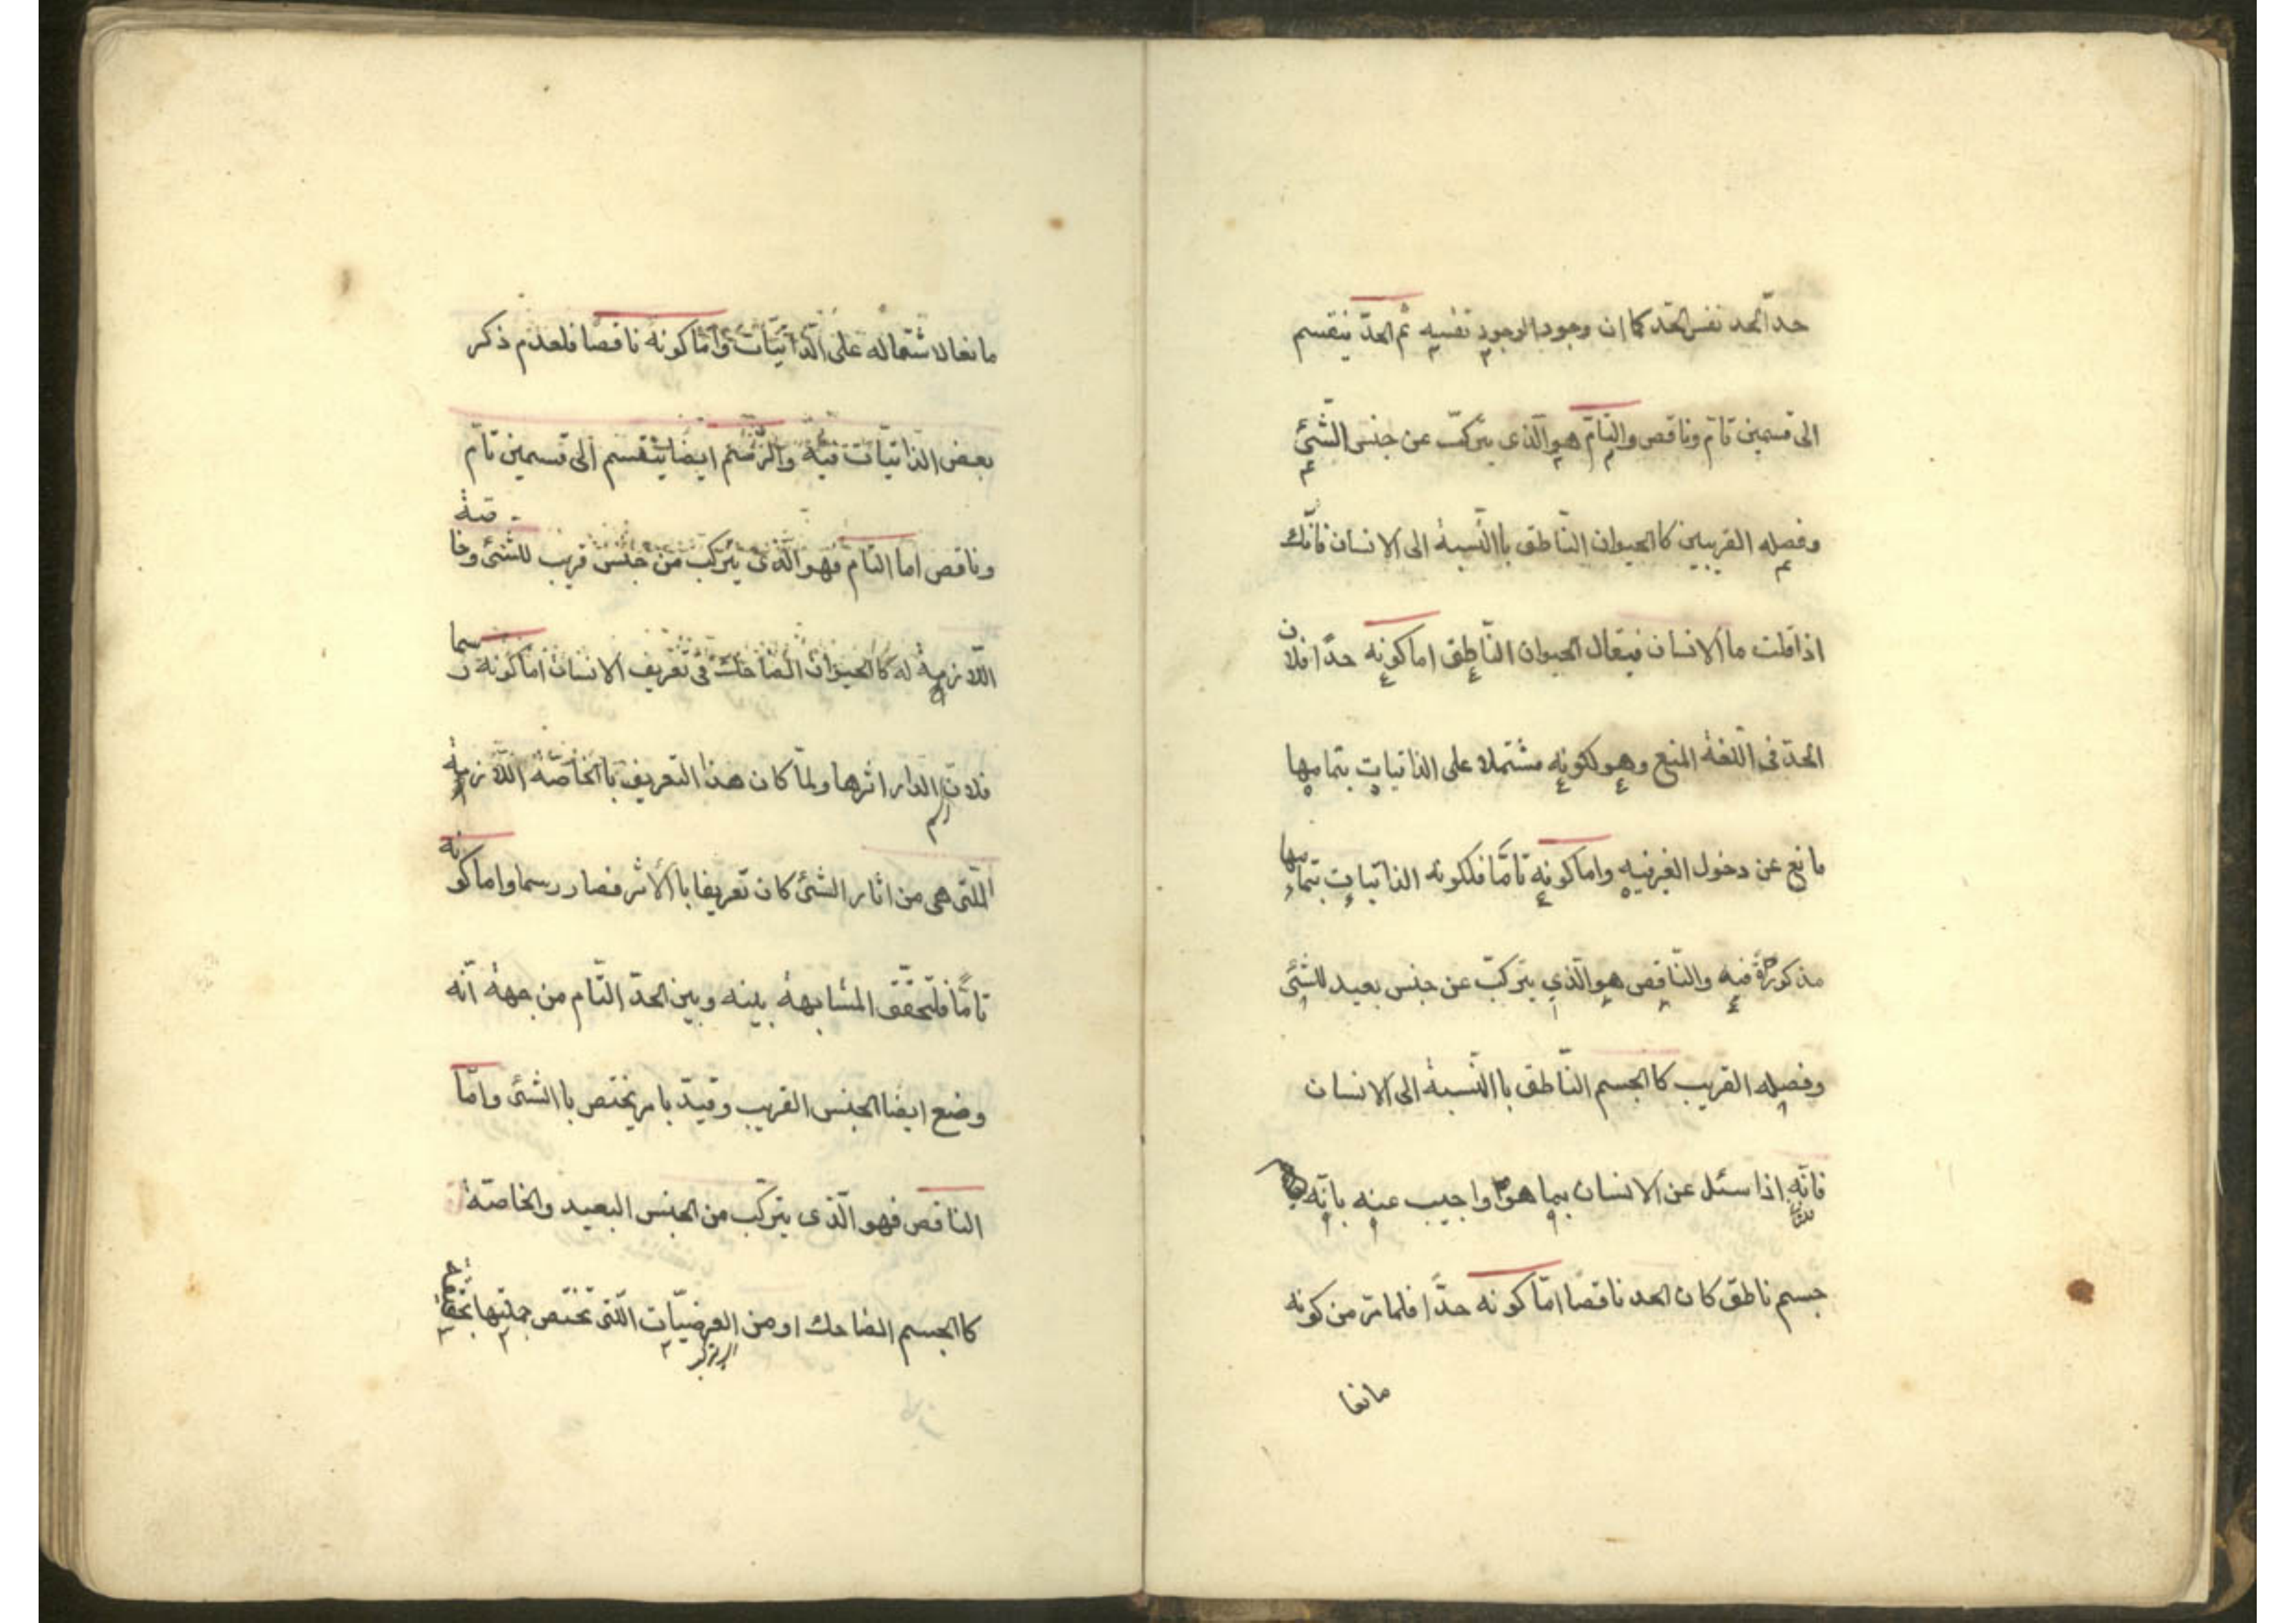 حدّ الحد نفس الحدّ كما ان وجود الوجود نفسه ثم الحدّ ينقسم
الى قسمين تامّ وناقص والتامّ هو الّذى يتركّب عن جنس الشّئ
وفصله القريبين كالحيوان النّاطق باالنّسبة الى الانسان فانّك
اذا قلت ما الانسان فيقال الحيوان النّاطق اما كونه حدّا فلان
الحدّ فى اللّغة المنع وهو لكونه مشتملا على الذاتيات بتمامها
مانع عن دخول الغير فيه واما كونه تامّا فلكونه الذاتيات بتمامها
مذكورة فيه والنّاقص هو الّذي يتركّب عن جنس بعيد للشّئ
وفصله القريب كاالجسم النّاطق باالنّسبة الى الانسان
فانّه اذا سئل عن الانسان بما هو واجيب عنه بانّه
جسم ناطق كان الحد ناقصًا امّا كونه حدًّا فلما مرّ من كونه
مانعا
مانعا لاشتماله على الّذاتيّات وامّا كونه ناقصًا فلعدم ذكر
بعض الذاتيّات فيه والرّسم ايضا ينقسم الى قسمين تامّ
وناقص اما التام فهو الّذى يتركّب من جنس قريب للشئ وخاصّة
اللّازمة له كاالحيوان الضاحك فى تعريف الانسان امّا كونه رسما
فلانّ رسم الدار اثرها ولمّا كان هذا التعريف باالخاصّة اللّازمة
الّلتى هى من اثار الشئ كان تعريفا باالأثر فصار رسما واما كونه
تامًّا فلتحقّق المشابهة بينه وبين الحدّ التّام من جهة انّه
وضع ايضا الجنس القريب وقيّد بامر يختص باالشّئ وامّا
الناقص فهو الّذى يتركّب من الجنس البعيد والخاصّة
كاالجسم الضاحك او من العرضيّات اللّتى تختص جملتها بحقيقة